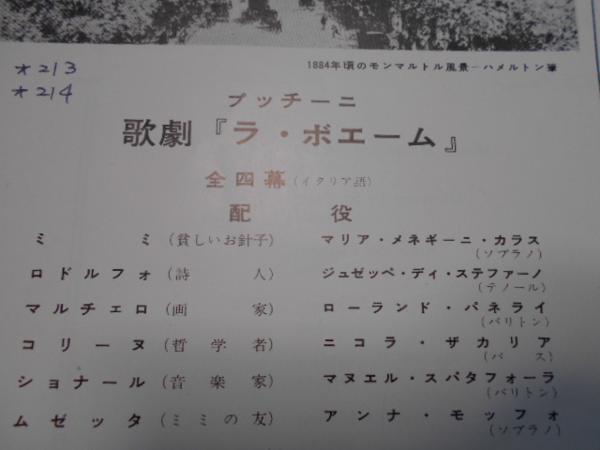 1884年頃のモンマルトル風景－ハメルトン筆
*213
*214
プッチーニ
歌劇『ラ・ボエーム』
全四幕(イタリア語)
配 役
ミ ミ (貧しいお針子) マリア・メネギーニ・カラス
(ソプラノ)
ロドルフォ (詩 人) ジュゼッペ・ディ・ステファーノ
(テノール)
マルチェロ (画 家) ローランド・パネライ
(バリトン)
コリーヌ (哲学者) ニコラ・ザカリア
(バ ス)
ショナール (音楽家) マヌエル・スパタフォーラ
(バリトン)
ムゼッタ (ミミの友) アンナ・モッフォ
(ソプラノ)